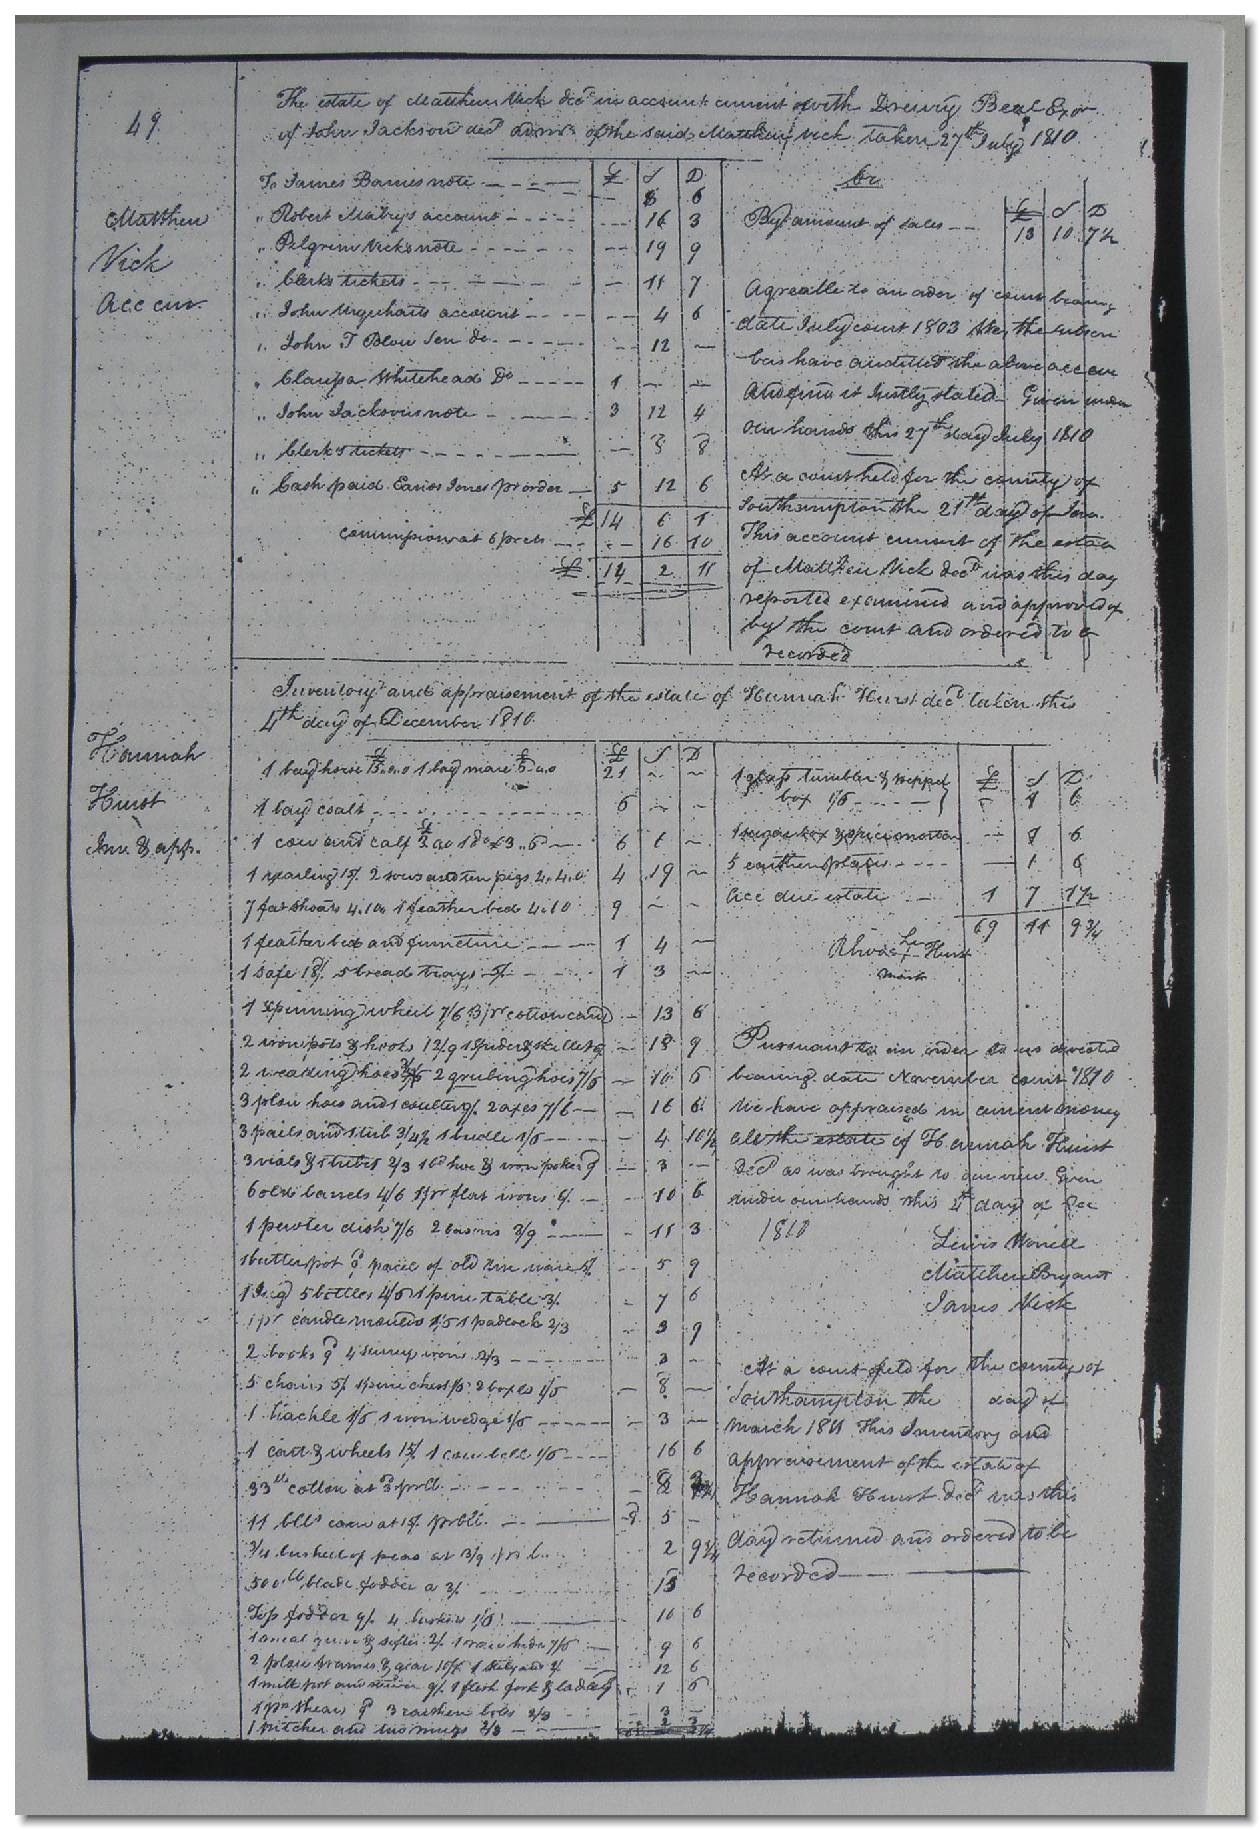 49
The estate of Matthew Vick decd in account current with Drewry Beal Exor
of John Jackson decd admr of the said Matthew Vick taken 27th July 1810
Matthew
Vick
Acc cur.
£ S D
To James Barnes note 8 6
" Robert Mabrys account 16 3
" Pilgrim Vicks note 19 9
" Clerks tickets 11 7
" John Urquharts account 4 6
" John T Blow Sen do 12 —
" Clarissa Whitehead Do 1 — —
" John Jacksons note 3 12 4
" Clerk's tickets — 3 8
" Cash paid Jones pr order 5 12 6
£ 14 6 1
commission at 6 prct 16 10
£ 14 2 11
Cr
£ S D
By amount of sales 13 10 7½
Agreable to an order of court bearing
date July court 1803 the subscri
bers have audited the above acc cur
And find it Justly stated Given under
our hands this 27th day July 1810
At a court held for the county of
Southampton the 21st day of Jan.
This account current of the estate
of Matthew Vick decd was this day
reported examined and approved of
by the court and ordered to be
recorded
Inventory and appraisement of the estate of Hannah Hurst decd taken this
4th day of December 1810
Hannah
Hurst
Inv. & app.
£ S D
1 bay horse £15.0.0 1 bay mare £6.0.0 21 ~ ~
1 bay coalt 6 ~ ~
1 cow and calf £3.0.0 1 do £3..6 6 6 ~
1 yearling 15/. 2 sows and ten pigs 4.4.0 4 19 ~
7 fat shoats 4.10. 1 feather bed 4.10 9 ~ ~
1 feather bed and furniture 1 4 —
1 safe 18/. 5 bread trays 5/. 1 3 —
1 spinning wheel 7/6 3 pr cotton cards 13 6
2 iron pots & hooks 12/9 1 spider & skillet 18 9
2 weading hoes 2 grubing hoes 7/6 10 6
3 plow hoes and 1 coulter 9/. 2 axes 7/6 16 6
3 pails and 1 tub 3/4½ 1 bridle 1/6 4 10½
3 vials & 2/3 hoe & iron poker 3 —
6 old barrels 4/6 1 pr flat irons 6/. 10 6
1 pewter dish 7/6 2 basons 3/9 11 3
1 butter pot parcel of old ware 5/. 5 9
1 Jug 5 bottles 4/6 1 pine table 3/. 7 6
1 pr candle moulds 1/6 1 padlock 2/3 3 9
2 books 4 irons 2/3 3 —
5 chairs 5/. 1 pine chest 1/6 2 boxes 1/6 8 —
1 hackle 1/6 1 iron wedge 1/6 3 —
1 cart & wheels 15/. 1 cow bell 1/6 16 6
33 lb cotton at 3d pr lb 8 3
11 blls corn at 15/. pr bll. 8 5 —
3/4 bushel of peas at 3/9 2 9¾
500 lb blade fodder a 3/. 15
Top fodder 9/. 4 1/6 10 6
1 meal & sifter 2/. 1 raw hide 7/6 9 6
2 plow frames & gear 10/6 1 2/. 12 6
1 milk pot and 9/. 1 flesh fork & ladle 1 6
1 pr shears 3 earthen bols 2/3 3 —
1 pitcher and two mugs 2/3
£ S D
1 glass tumbler & pepper
box 1/6 1 6
1 sugar box & spice morter 1 6
5 earthen plates 1 6
acc due estate 1 7 1½
69 11 9¾
her
Rhoda + Hurst
mark
Pursuant to an order to us directed
bearing date November court 1810
We have appraised in current money
all the estate of Hannah Hurst
decd as was brought to our view Given
under our hands this 4th day of Dec
1810
Lewis Worrell
Matthew Bryant
James Vick
At a court held for the county of
Southampton the day of
March 1811 This Inventory and
appraisement of the estate of
Hannah Hurst decd was this
day returned and ordered to be
recorded